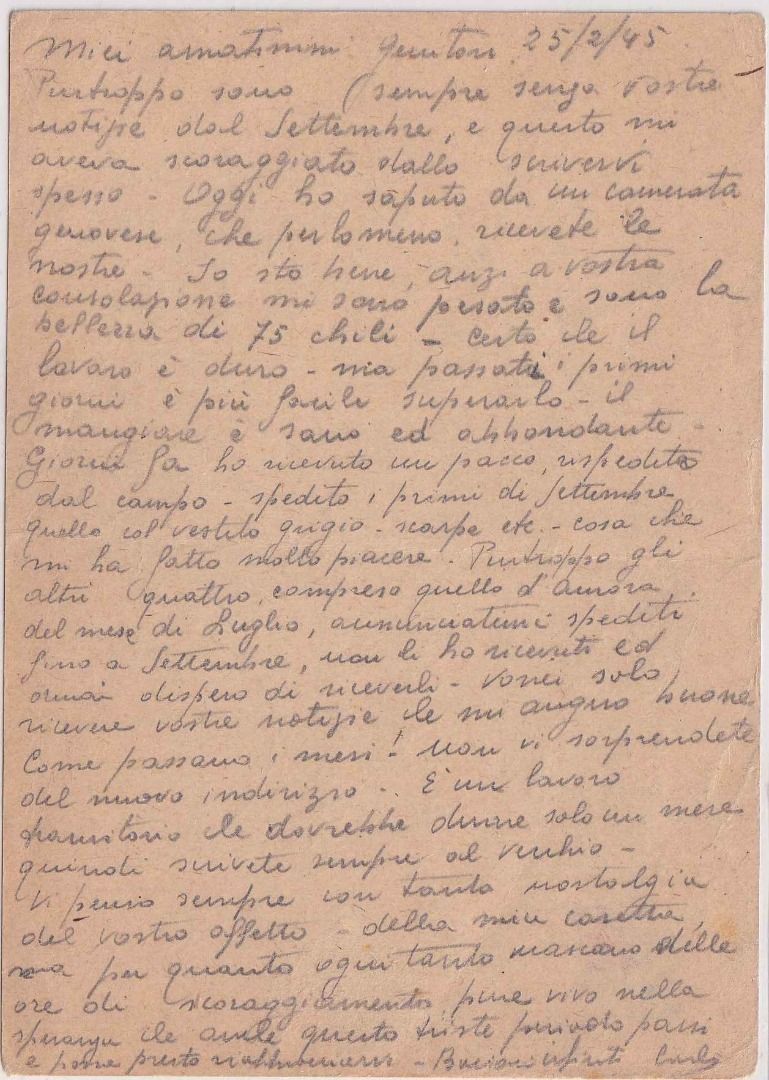 Miei amatissimi genitori 25/2/45
Purtroppo sono sempre senza vostre
notizie dal Settembre, e questo mi
aveva scoraggiato dallo scrivervi
spesso - Oggi ho saputo da un camerata
genovese, che perlomeno, ricevete le
nostre - Io sto bene, anzi a vostra
consolazione mi sono pesato e sono la
bellezza di 75 chili - Certo che il
lavoro è duro - ma passati i primi
giorni è più facile superarlo - il
mangiare è sano ed abbondante -
Giorni fa ho ricevuto un pacco, rispedito
dal campo - spedito i primi di Settembre
quello col vestito grigio - scarpe etc. - cosa che
mi ha fatto molto piacere. Purtroppo gli
altri quattro, compreso quello d'
del mese di Luglio, annunciatemi spediti
fino a Settembre, non li ho ricevuti ed
ormai dispero di riceverli - Vorrei solo
ricevere vostre notizie che mi auguro buone.
Come passano i mesi! Non vi sorprendete
del nuovo indirizzo -. È un lavoro
transitorio che dovrebbe durare solo un mese
quindi scrivete sempre al vecchio -
Vi penso sempre con tanta nostalgia
del vostro affetto - della mia casetta,
ma per quanto ogni tanto nascano delle
ore di scoraggiamento pure vivo nella
speranza che anche questo triste periodo passi
e possa presto riabbracciarvi - Bacioni infiniti Carlo